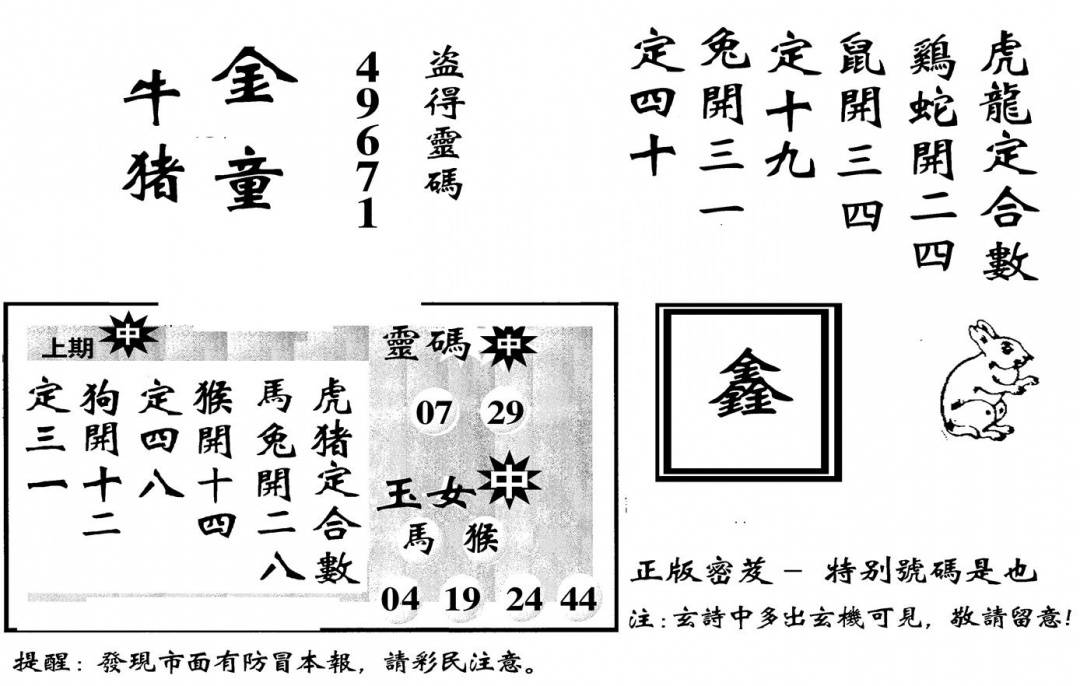 虎龍定合數
鷄蛇開二四
鼠開三四
定十九
兔開三一
定四十
盗得靈碼
49671
金童
牛猪
上期 中
虎猪定合數
馬兔開二八
猴開十四
定四八
狗開十二
定三一
靈碼 中
07 29
玉女 中
馬 猴
04 19 24 44
鑫
正版密茇－特别號碼是也
注:玄詩中多出玄機可見，敬請留意!
提醒：發現市面有防冒本報，請彩民注意。